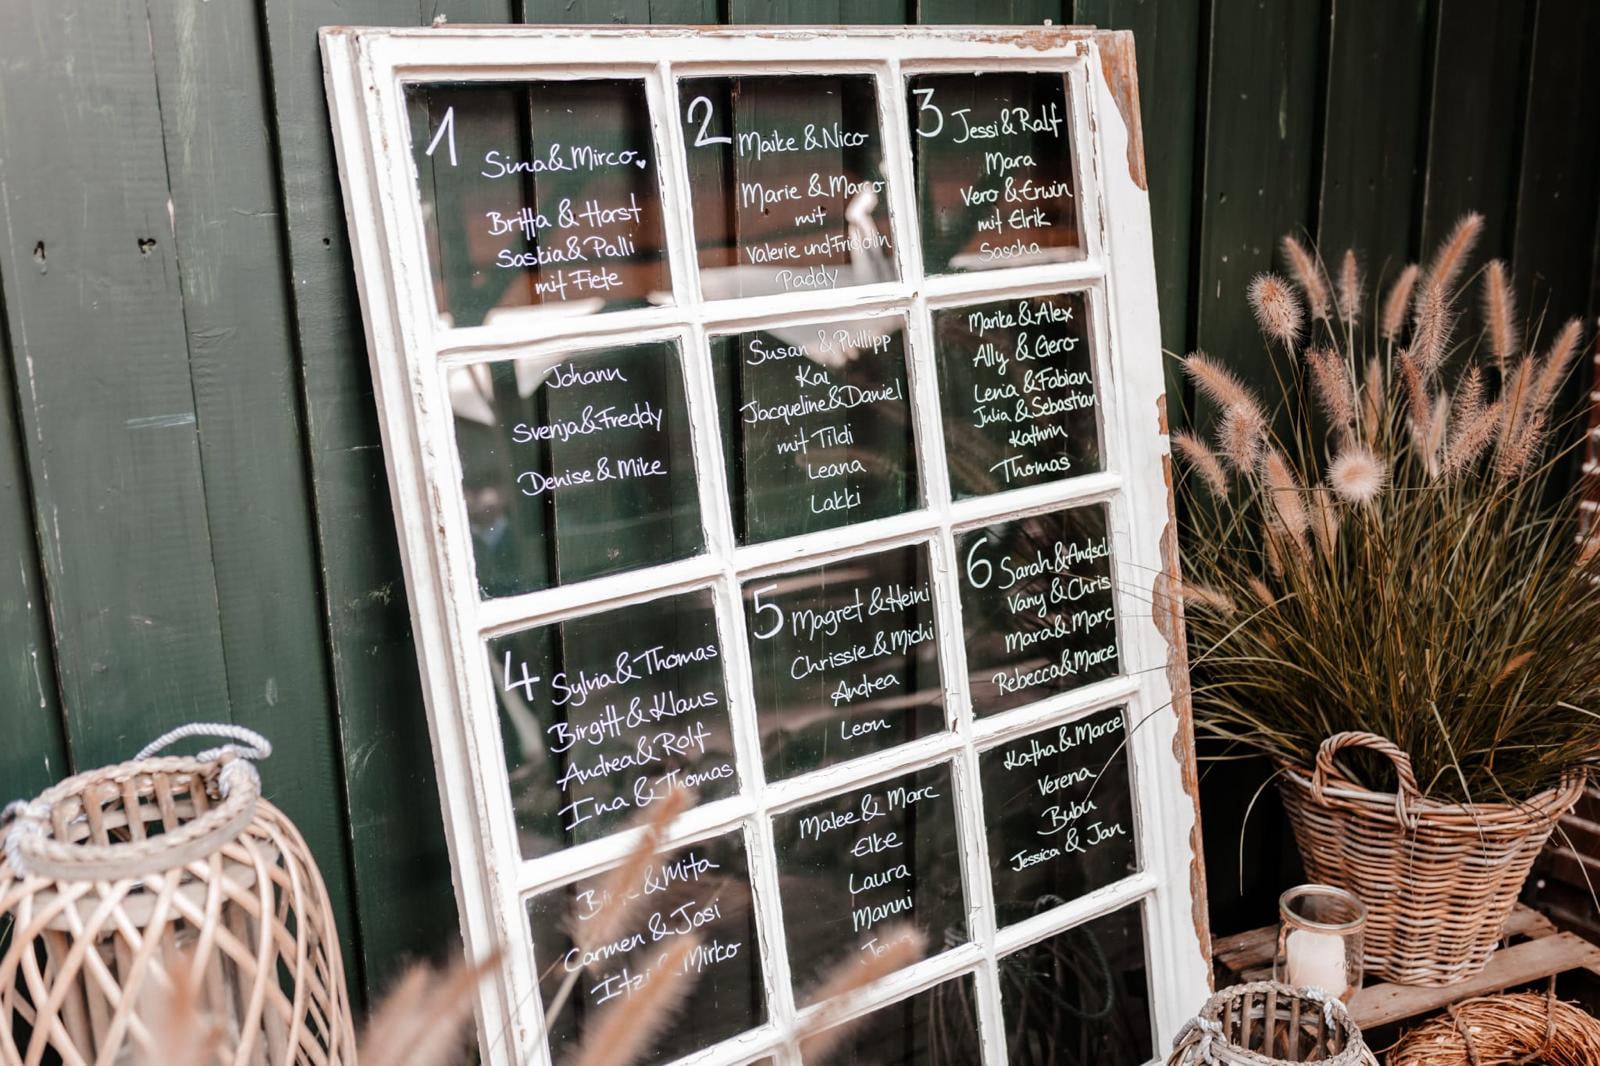 1
Sina & Mirco
Britta & Horst
Saskia & Palli
mit Fiete
Johann
Svenja & Freddy
Denise & Mike
2
Maike & Nico
Marie & Marco
mit
Valerie und Fridolin
Paddy
Susan & Phillipp
Kai
Jacqueline & Daniel
mit Tildi
Leana
Lakki
3
Jessi & Ralf
Mara
Vero & Erwin
mit Elrik
Sascha
Marike & Alex
Ally & Gero
Lena & Fabian
Julia & Sebastian
Kathrin
Thomas
4
Sylvia & Thomas
Birgitt & Klaus
Andrea & Rolf
Ina & Thomas
& Mita
Carmen & Josi
& Mirko
5
Magret & Heini
Chrissie & Michi
Andrea
Leon
Malee & Marc
Elke
Laura
Manni
6
Sarah & Andsch
Vany & Chris
Mara & Marc
Rebecca & Marce
Katha & Marcel
Verena
Bubu
Jessica & Jan